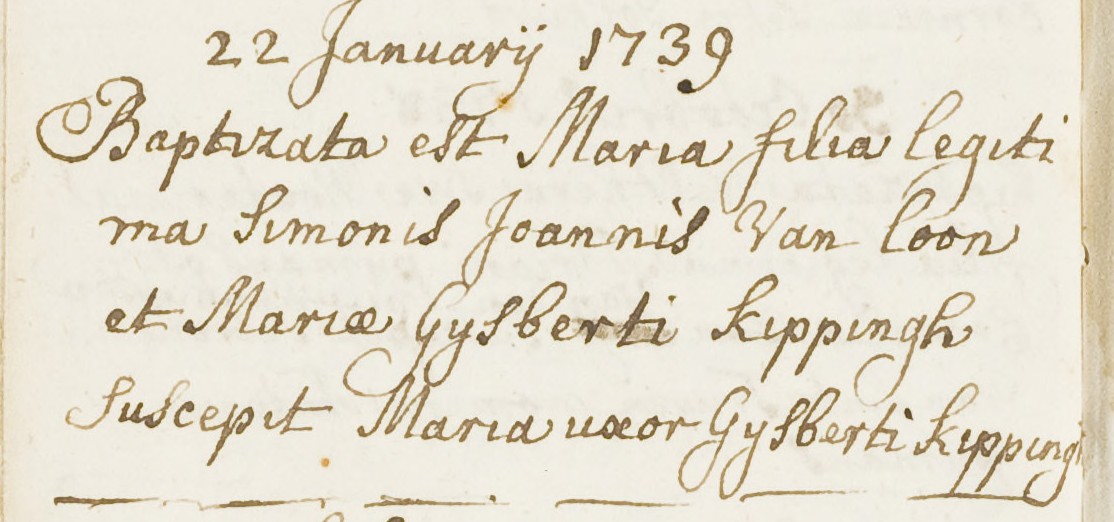 22 Januarij 1739
Baptizata est Maria filia legiti
ma Simonis Joannis Van Loon
et Mariæ Gysberti Kippingh
Suscepit Maria uxor Gysberti Kipping